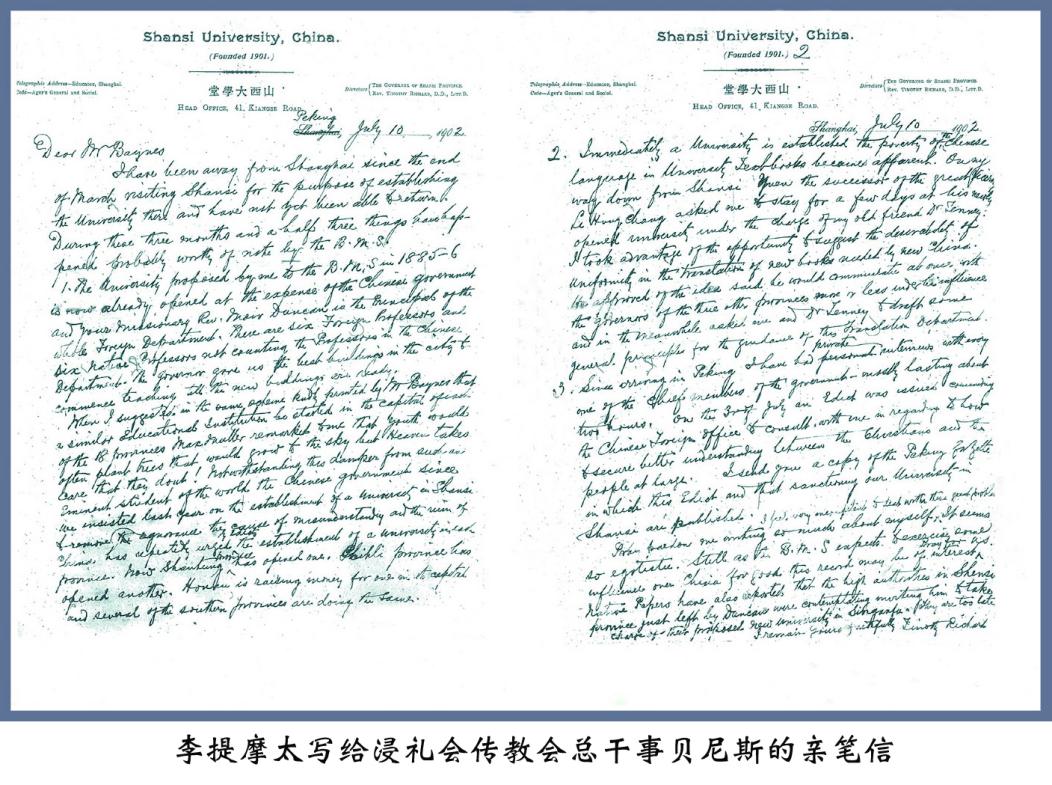 Shansi University, China.
(Founded 1901.)
Telegraphic Address—Education, Shanghai.
Code—Ager's General and Social.
堂學大西山
Directors { The Governor of Shansi Province.
Rev. Timothy Richard, D.D., Litt.D.
Head Office, 41, Kiangse Road,
Peking
Shanghai, July 10 1902
Dear Mr Baynes
I have been away from Shanghai since the end
of March visiting Shansi for the purpose of establishing
the University there and have not yet been able to return.
During these three months and a half three things have hap-
pened probably worthy of note by the B.M.S.
1. The University proposed by me to the B.M.S in 1885-6
is now already opened at the expense of the Chinese government
and your Missionary Rev. Moir Duncan is the Principal of the
whole Foreign Department. There are six Foreign Professors and
six Native Professors not counting the Professors in the Chinese
Department. The Governor gave us the best buildings in the city to
commence teaching till the new buildings are ready.
When I suggested in the same scheme kindly printed by Mr Baynes that
a similar Educational Institution be started in the capital of each
of the 18 provinces Max Muller remarked to me that youth would
often plant trees that would grow to the sky but Heaven takes
care that they don't! Notwithstanding this damper from such an
Eminent student of the world the Chinese government since
we insisted last year on the establishment of a University in Shansi
to remove the ignorance the cause of misunderstanding and the ruin of
China. has repeatedly urged the establishment of a university in each
province. Now Shantung has opened one. Chihli province has
opened another. Honan is raising money for one in its capital
and several of the southern provinces are doing the same.
Shansi University, China.
(Founded 1901.) 2
Telegraphic Address—Education, Shanghai.
Code—Ager's General and Social.
堂學大西山
Directors { The Governor of Shansi Province.
Rev. Timothy Richard, D.D., Litt.D.
Head Office, 41, Kiangse Road,
Shanghai, July 10 1902
2. Immediately a University is established the poverty of the Chinese
language in University Textbooks becomes apparent. On my
way down from Shansi Yuen the successor of the great
Li Hung Chang asked me to stay for a few days at his newly
opened university under the charge of my old friend Dr Tenney.
I took advantage of the opportunity to suggest the desirability of
Uniformity in the translation of new books needed by new China.
He approved of the idea said he would communicate at once with
the governors of the three other provinces more or less under his influence
and in the meanwhile asked me and Dr Tenney to draft some
general principles for the guidance of this Translation Department.
3. Since arriving in Peking I have had private personal interviews with every
one of the Chief members of the government—mostly lasting about
two hours. On the 3rd of July an Edict was issued commanding
the Chinese Foreign Office to consult with me in regarding to how
to secure better understanding between the Christians and the
people at large. I send you a copy of the Peking Gazette
in which this Edict and that sanctioning our University in
Shansi are published.
Pray pardon me writing so much about myself. It seems
so egotistic. Still as the B.M.S expects to exercise some
influence over China for good this record may be of interest.
Native Papers have also reported that the high authorities in Shensi
province just left by Duncan were contemplating inviting him to take
charge of their proposed new University in Singanfu. They are too late
I remain yours faithfully Timothy Richard
李提摩太写给浸礼会传教会总干事贝尼斯的亲笔信